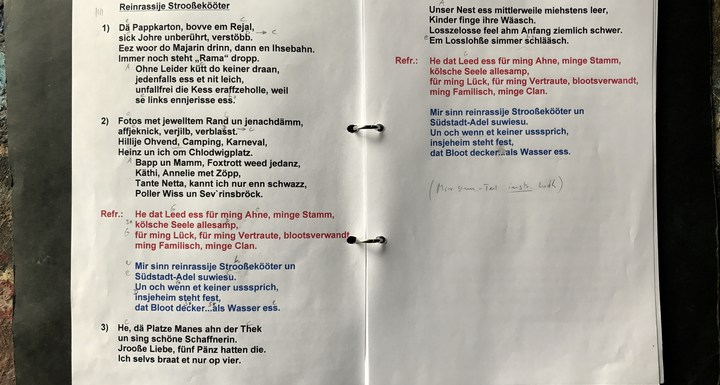 Reinrassije Strooßekööter
1) Dä Pappkarton, bovve em Rejal,
sick Johre unberührt, verstöbb.
Eez woor do Majarin drinn, dann en Ihsebahn.
Immer noch steht „Rama“ dropp.
Ohne Leider kütt do keiner draan,
jedenfalls ess et nit leich,
unfallfrei die Kess eraffzeholle, weil
se links ennjerisse ess.
2) Fotos met jewelltem Rand un jenachdämm,
affjeknick, verjilb, verblasst.
Hillije Ohvend, Camping, Karneval,
Heinz un ich om Chlodwigplatz.
Bapp un Mamm, Foxtrott weed jedanz,
Käthi, Annelie met Zöpp,
Tante Netta, kannt ich nur enn schwazz,
Poller Wiss un Sev`rinsbröck.
Refr.: He dat Leed ess für ming Ahne, minge Stamm,
kölsche Seele allesamp,
für ming Lück, für ming Vertraute, blootsverwandt,
ming Familisch, minge Clan.
Mir sinn reinrassije Strooßekööter un
Südstadt-Adel suwiesu.
Un och wenn et keiner usssprich,
insjeheim steht fest,
dat Bloot decker...als Wasser ess.
3) He, dä Platze Manes ahn der Thek
un sing schöne Schaffnerin.
Jrooße Liebe, fünf Pänz hatten die.
Ich selvs braat et nur op vier.
Unser Nest ess mittlerweile miehstens leer,
Kinder finge ihre Wääsch.
Losszelosse feel ahm Anfang ziemlich schwer.
Em Losslohße simmer schlääsch.
Refr.: He dat Leed ess für ming Ahne, minge Stamm,
kölsche Seele allesamp,
für ming Lück, für ming Vertraute, blootsverwandt,
ming Familisch, minge Clan.
Mir sinn reinrassije Strooßekööter un
Südstadt-Adel suwiesu.
Un och wenn et keiner usssprich,
insjeheim steht fest,
dat Bloot decker...als Wasser ess.